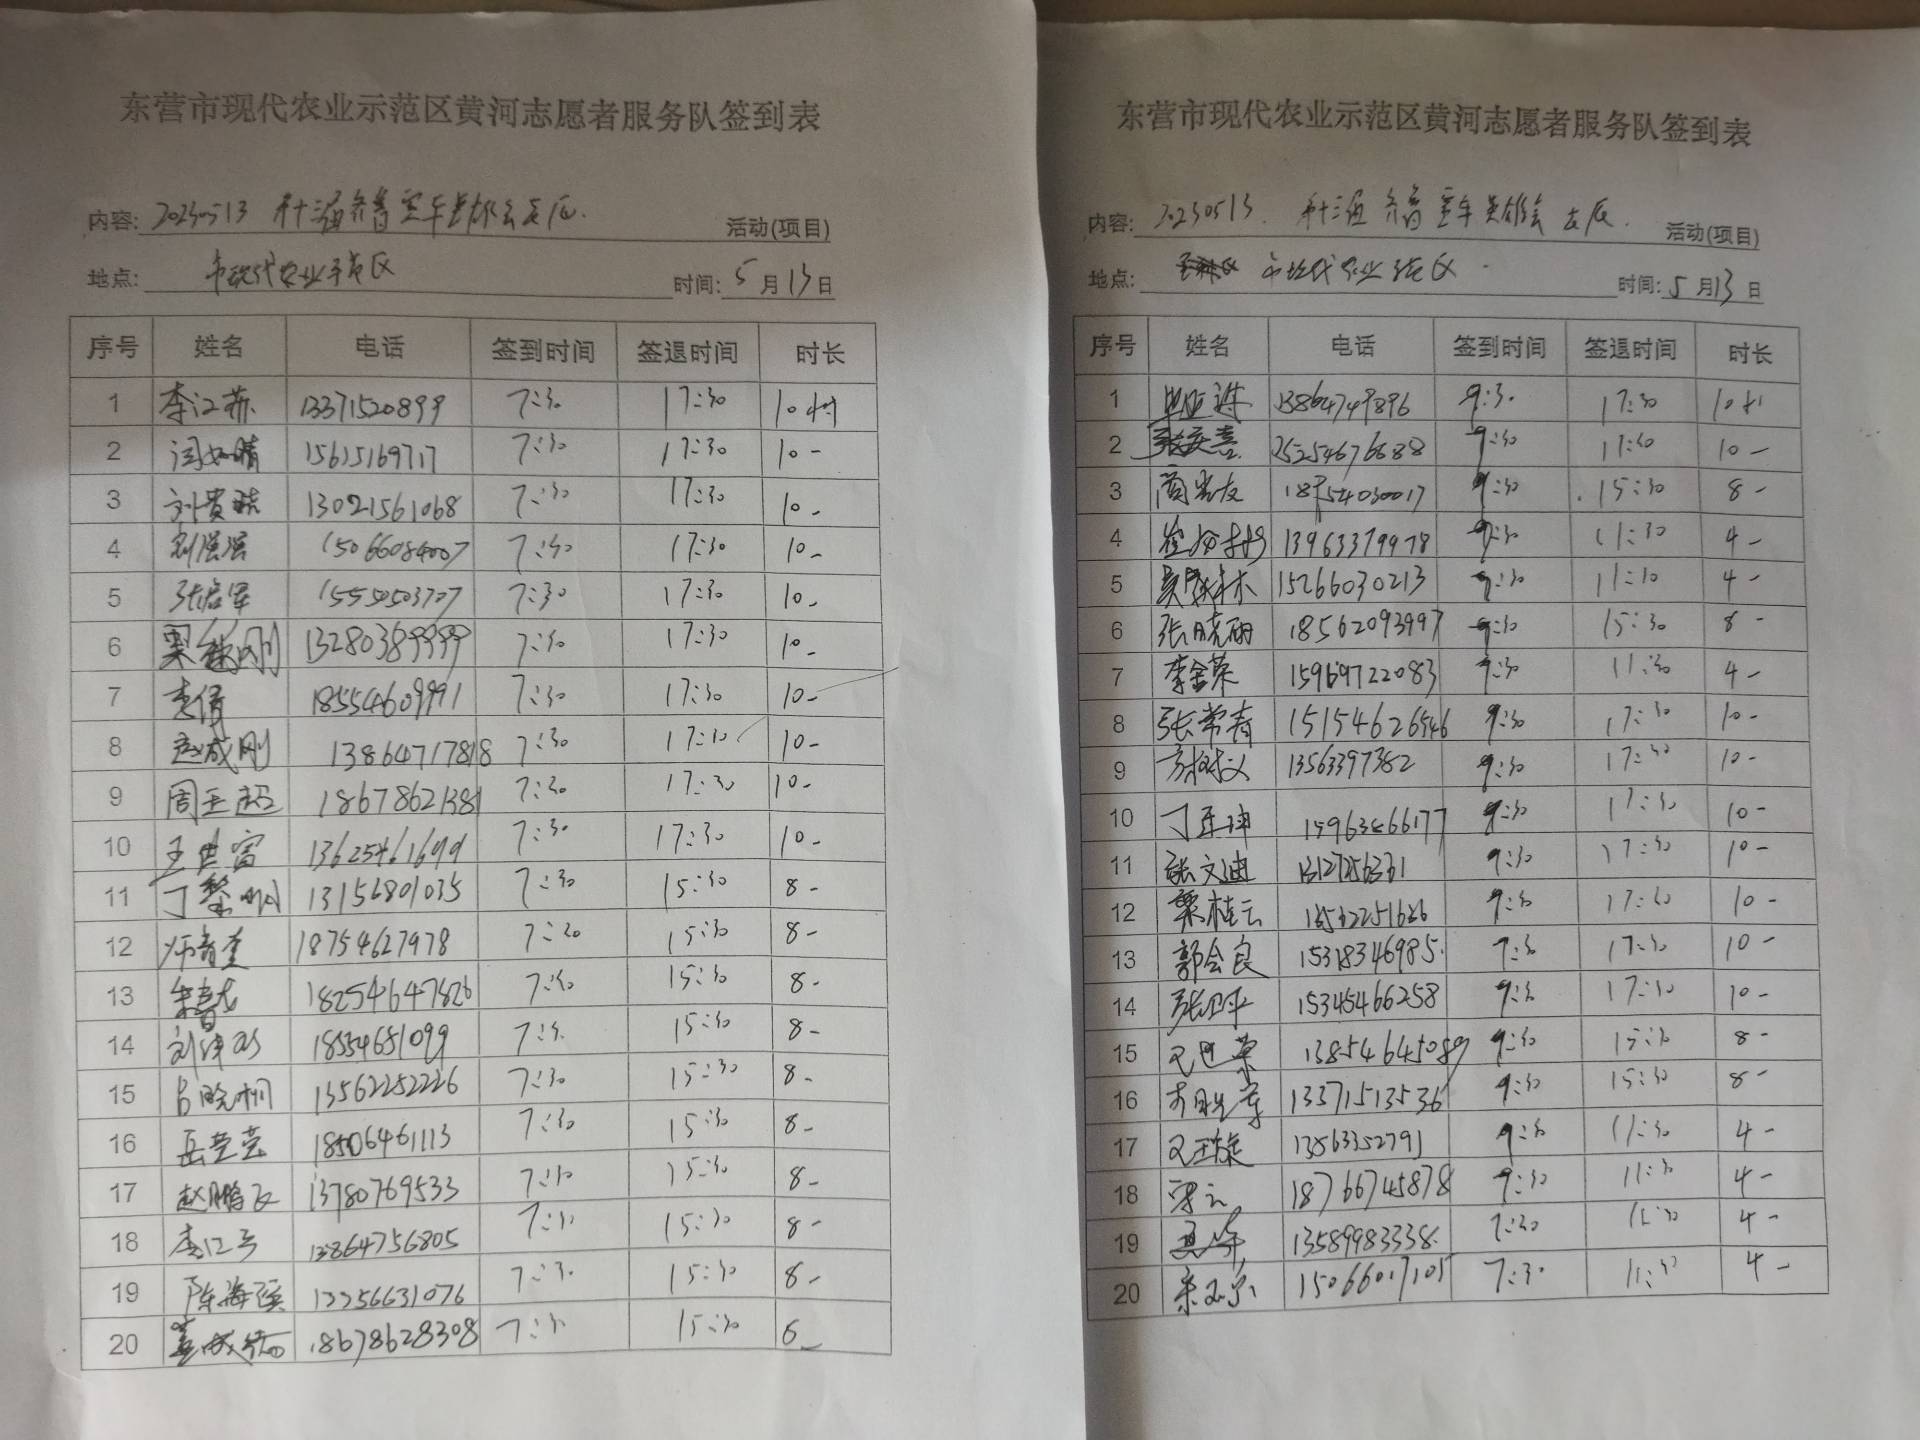 东营市现代农业示范区黄河志愿者服务队签到表
内容: 20230513 第十三届齐鲁 军 英雄会
活动(项目)
地点: 市现代农业示范区
时间: 5月13日
序号 姓名 电话 签到时间 签退时间 时长
1 李江苏 13371520899 7:30 17:30 10时
2 闫如晴 15615169717 7:30 17:30 10-
3 刘贵 13021561068 7:30 17:30 10-
4 15066084007 7:30 17:30 10-
5 15550503707 7:30 17:30 10-
6 刚 13280389999 7:30 17:30 10-
7 李倩 18554609991 7:30 17:30 10-
8 赵成刚 13864717818 7:30 17:30 10-
9 周玉超 18678621381 7:30 17:30 10-
10 王世富 13625461699 7:30 17:30 10-
11 丁黎明 13156801035 7:30 15:30 8-
12 18754627978 7:30 15:30 8-
13 18254647826 7:30 15:30 8-
14 18554651099 7:30 15:30 8-
15 吕晓桐 13562252226 7:30 15:30 8-
16 岳莹莹 18506461113 7:30 15:30 8-
17 赵鹏飞 13780769533 7:30 15:30 8-
18 13864756805 7:30 15:30 8-
19 陈海强 13256631076 7:30 15:30 8-
20 18678628308 7:30 15:30
东营市现代农业示范区黄河志愿者服务队签到表
内容: 20230513. 第十三届 齐鲁 军 英雄会
活动(项目)
地点: 市现代农业示范区
时间: 5月13日
序号 姓名 电话 签到时间 签退时间 时长
1 13864749896 :30 17:30 10时
2 张安喜 15254676688 :30 17:30 10-
3 18754030017 :30 15:30 8-
4 13963379978 :30 11:30 4-
5 15266030213 :30 11:30 4-
6 张晓丽 18562093997 :30 15:30 8-
7 李金荣 15969722083 :30 11:30 4-
8 张常青 15154626546 :30 17:30 10-
9 13563397382 :30 17:30 10-
10 15963466177 :30 17:30 10-
11 张文迪 :30 17:30 10-
12 栗桂云 :30 17:30 10-
13 郭会良 15318346985 7:30 17:30 10-
14 张卫平 15345466258 :30 17:30 10-
15 13854645089 :30 15:30 8-
16 13371513536 :30 15:30 8-
17 13563352791 :30 11:30 4-
18 18766745878 :30 11:30 4-
19 13589983338 7:30 11:30 4-
20 15066017105 7:30 11:30 4-